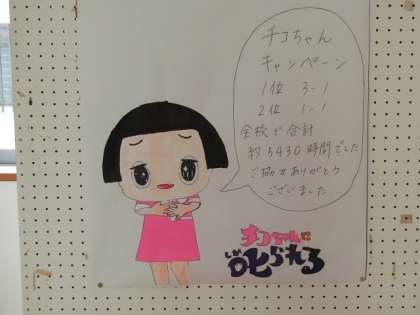 チコちゃん
キャンペーン
1位 3-1
2位 1-1
全校で合計
約5430時間でした
ご協力ありがとう
ございました
チコちゃんに
叱られる